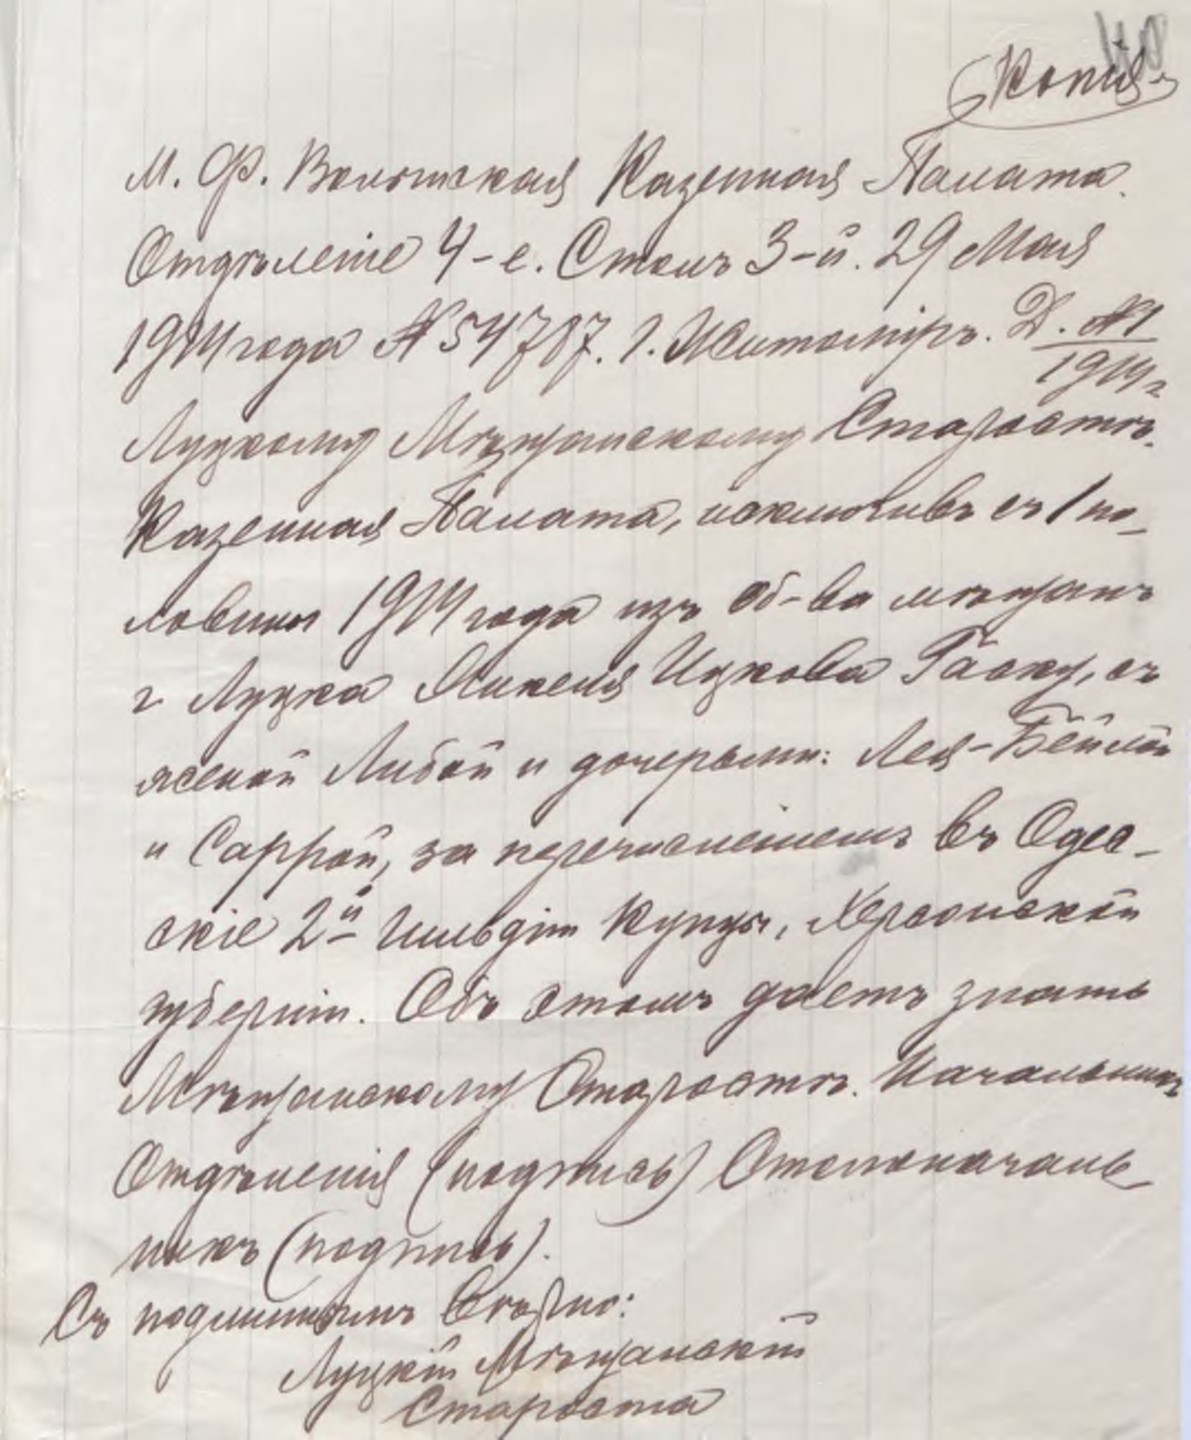 Копія
М. Ф. Волынская Казенная Палата.
Отдѣленіе 4-е. Столъ 3-й. 29 Мая
1914 года № 54787. г. Житоміръ. Д. № 1
1914 г.
Луцкому Мѣщанскому Старостѣ.
Казенная Палата, исключивъ съ 1 по-
ловины 1914 года изъ об-ва мѣщанъ
г Луцка Янкеля Ицкова Гаску, съ
женой Либой и дочерьми: Лея-Бейлой
и Саррой, за перечисленіемъ въ Одес-
скіе 2й гильдіи купцы, Херсонской
губерніи. Объ этомъ даетъ знать
Мѣщанскому Старостѣ. Начальникъ
Отдѣленія (подпись) Столоначаль
никъ (подпись).
Съ подлиннымъ вѣрно:
Луцкій Мѣщанскій
Староста